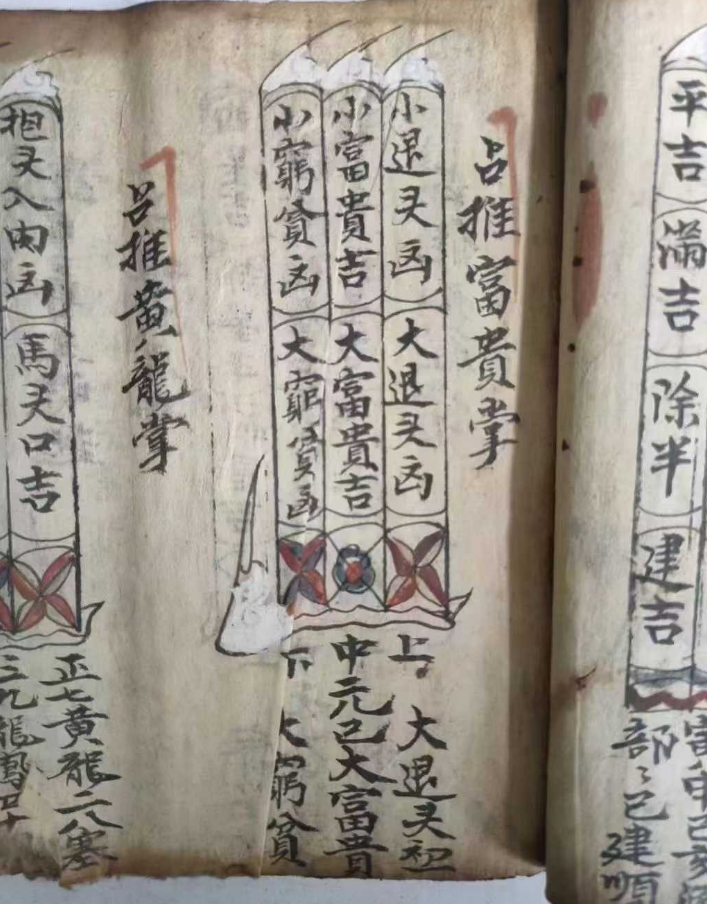 平吉
滿吉
除半
建吉
部〻已建順
占推富貴掌
小退灵凶
大退灵凶
小富貴吉
大富貴吉
小窮貧凶
大窮貧凶
上 大退灵
中元已大富貴
下 大窮貧
占推黃龍掌
馬灵口吉
灵入内凶
正七黃龍二八塞
三九龍鳳四十